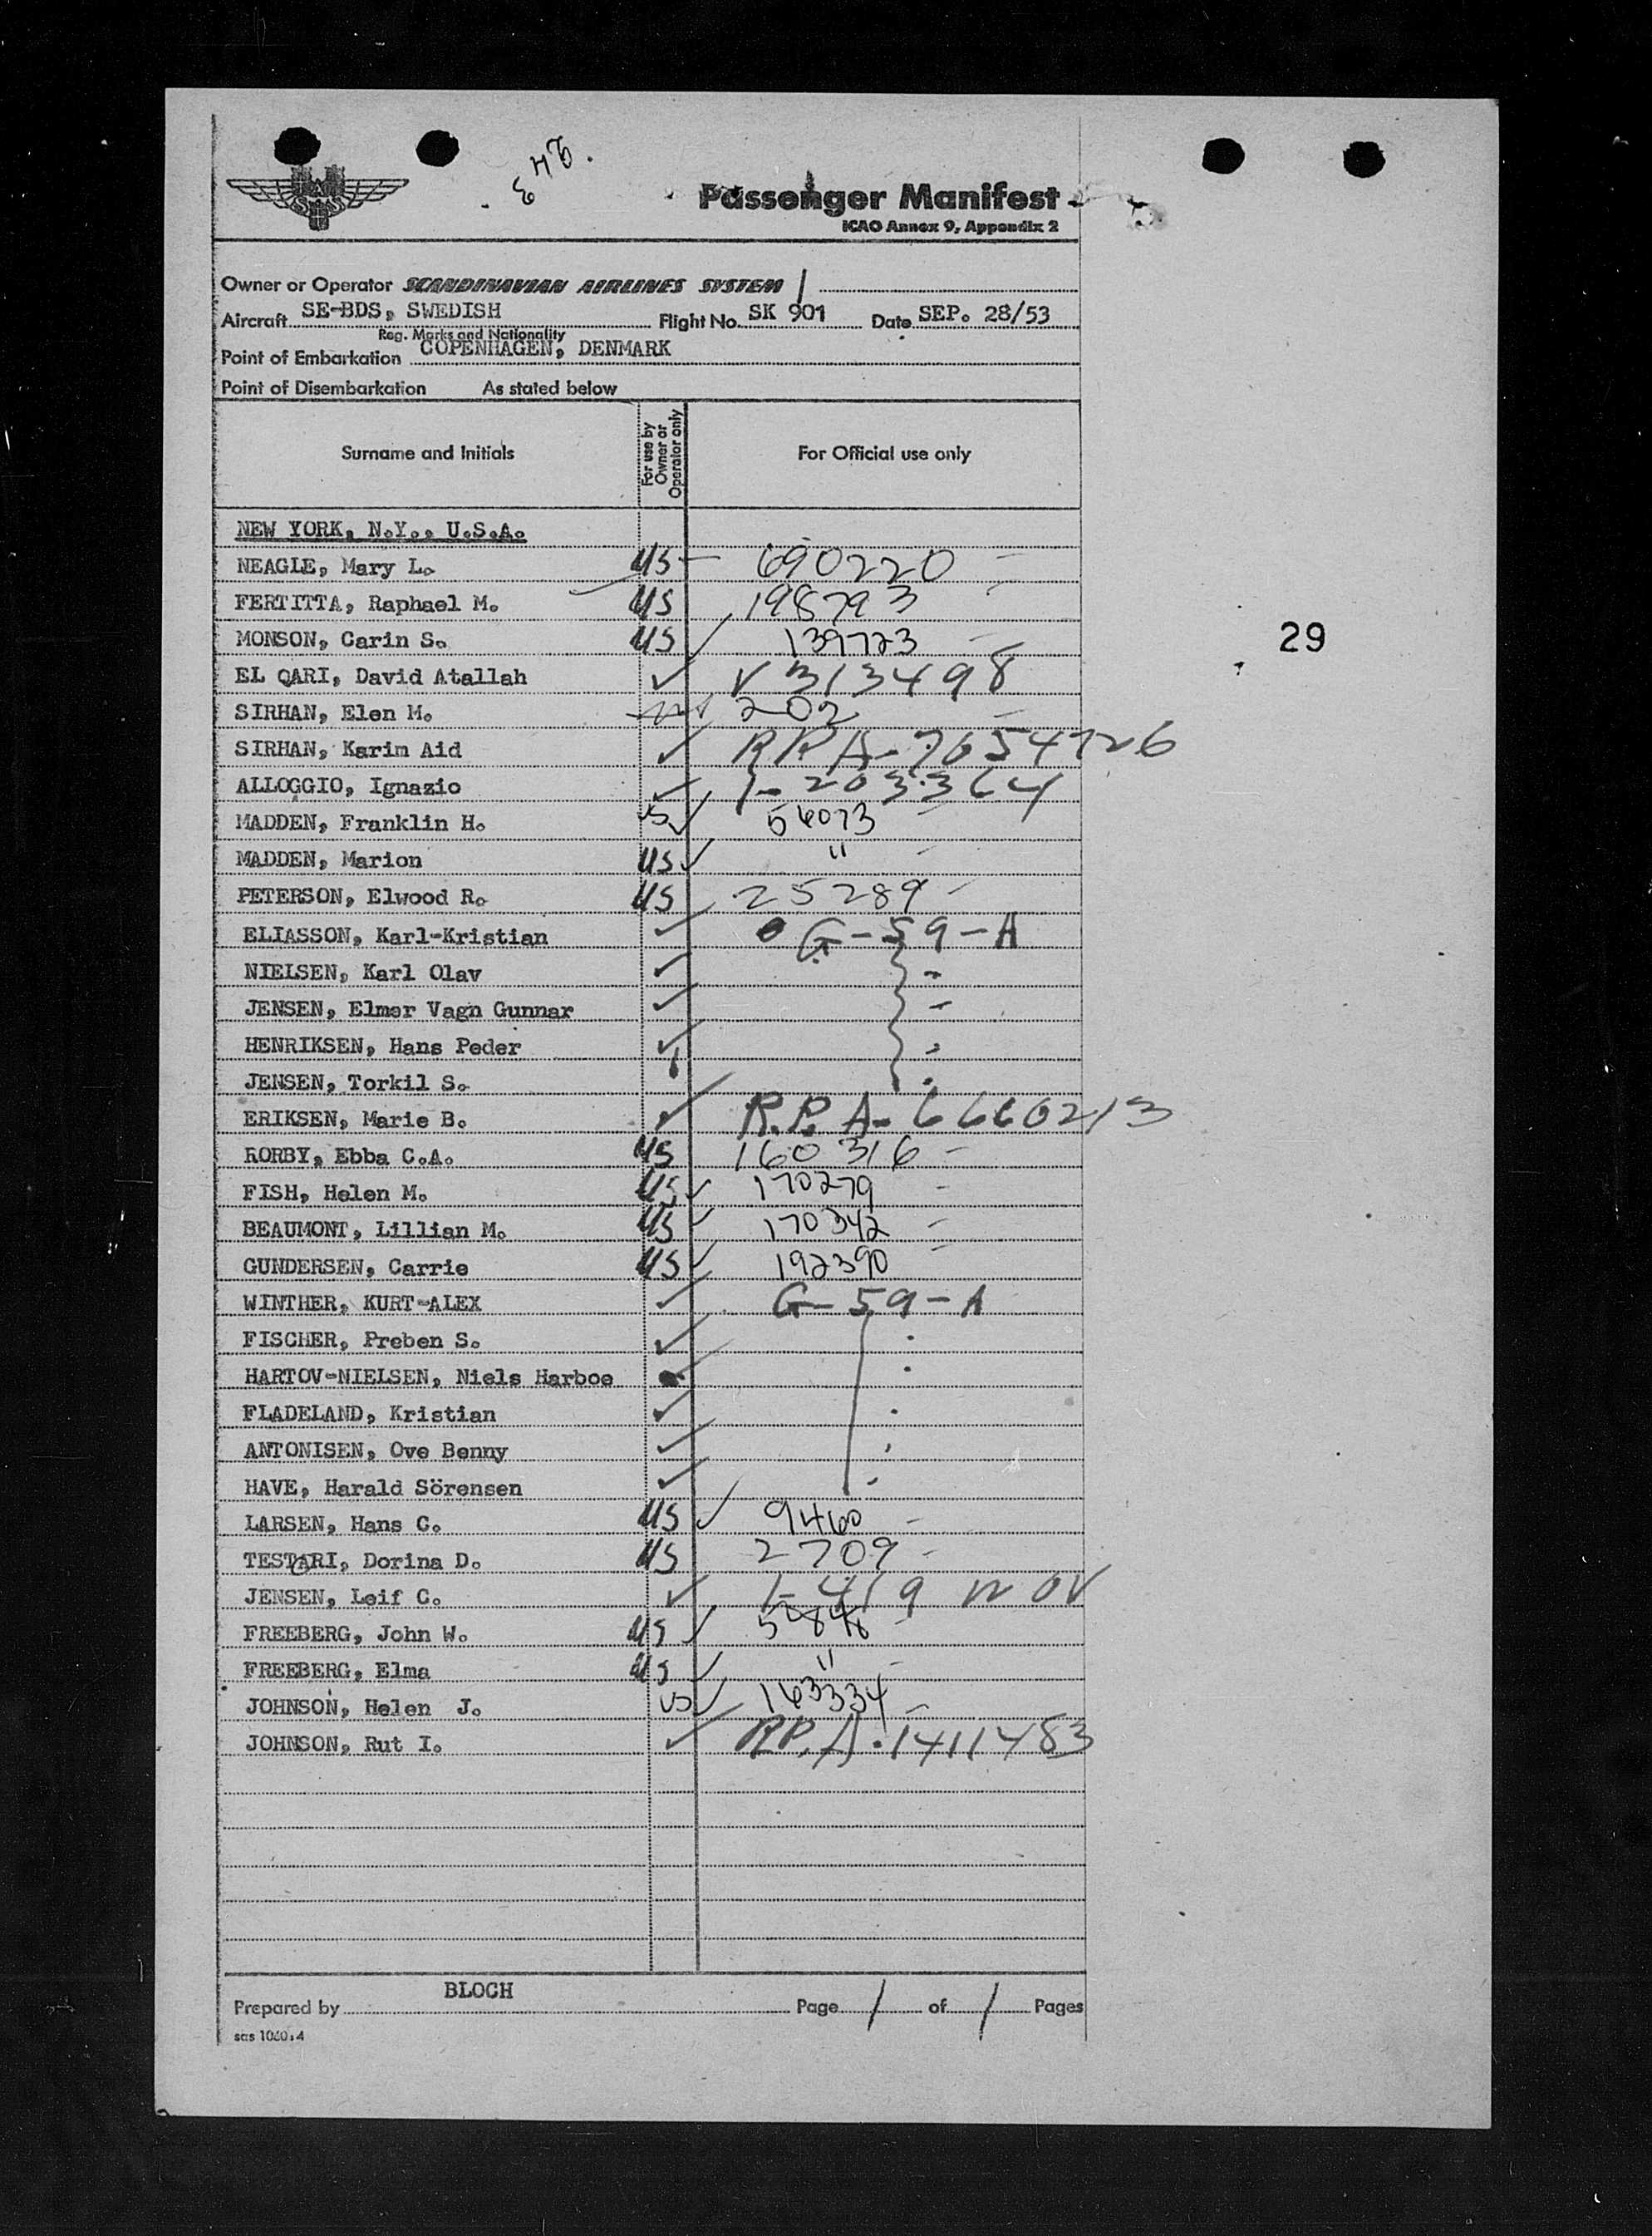 243
SAS
Passenger Manifest
ICAO Annex 9, Appendix 2
Owner or Operator SCANDINAVIAN AIRLINES SYSTEM
Aircraft SE-BDS, SWEDISH Flight No. SK 901 Date SEP. 28/53
Reg. Marks and Nationality
Point of Embarkation COPENHAGEN, DENMARK
Point of Disembarkation As stated below
Surname and Initials For use by Owner or Operator only For Official use only
NEW YORK, N.Y., U.S.A.
NEAGLE, Mary L. US 690220
FERTITTA, Raphael M. US 198793
29
MONSON, Carin S. US 139723
EL QARI, David Atallah V 313498
SIRHAN, Elen M. 202
SIRHAN, Karim Aid R.P. A-7654726
ALLOGGIO, Ignazio 1-203364
MADDEN, Franklin H. US 56073
MADDEN, Marion US "
PETERSON, Elwood R. US 25289
ELIASSON, Karl-Kristian G-59-A
NIELSEN, Karl Olav
JENSEN, Elmer Vagn Gunnar
HENRIKSEN, Hans Peder
JENSEN, Torkil S.
ERIKSEN, Marie B. R.P. A-6660213
RORBY, Ebba C.A. US 160316
FISH, Helen M. US 170279
BEAUMONT, Lillian M. US 170342
GUNDERSEN, Carrie US 192390
WINTHER, KURT-ALEX G-59-A
FISCHER, Preben S.
HARTOV-NIELSEN, Niels Harboe
FLADELAND, Kristian
ANTONISEN, Ove Benny
HAVE, Harald Sörensen
LARSEN, Hans C. US 9460
TESTARI, Dorina D. US 2709
JENSEN, Leif C. 1-419 NOV
FREEBERG, John W. US
FREEBERG, Elma US "
JOHNSON, Helen J. US 163334
JOHNSON, Rut I. R.P. A-1411483
Prepared by BLOCH Page 1 of 1 Pages
sas 1060:4